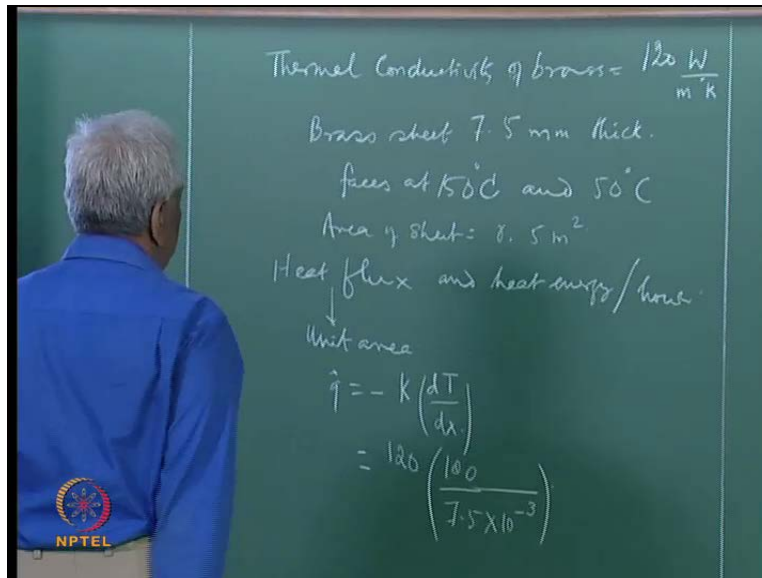 Thermal Conductivity of brass = 120 W/m°K
Brass sheet 7.5 mm thick.
faces at 150°C and 50°C
Area of sheet = 0.5 m²
Heat flux and heat energy/hour.
↓
Unit area
q̇ = - K (dT/dx)
= 120 (100/7.5×10⁻³)
NPTEL